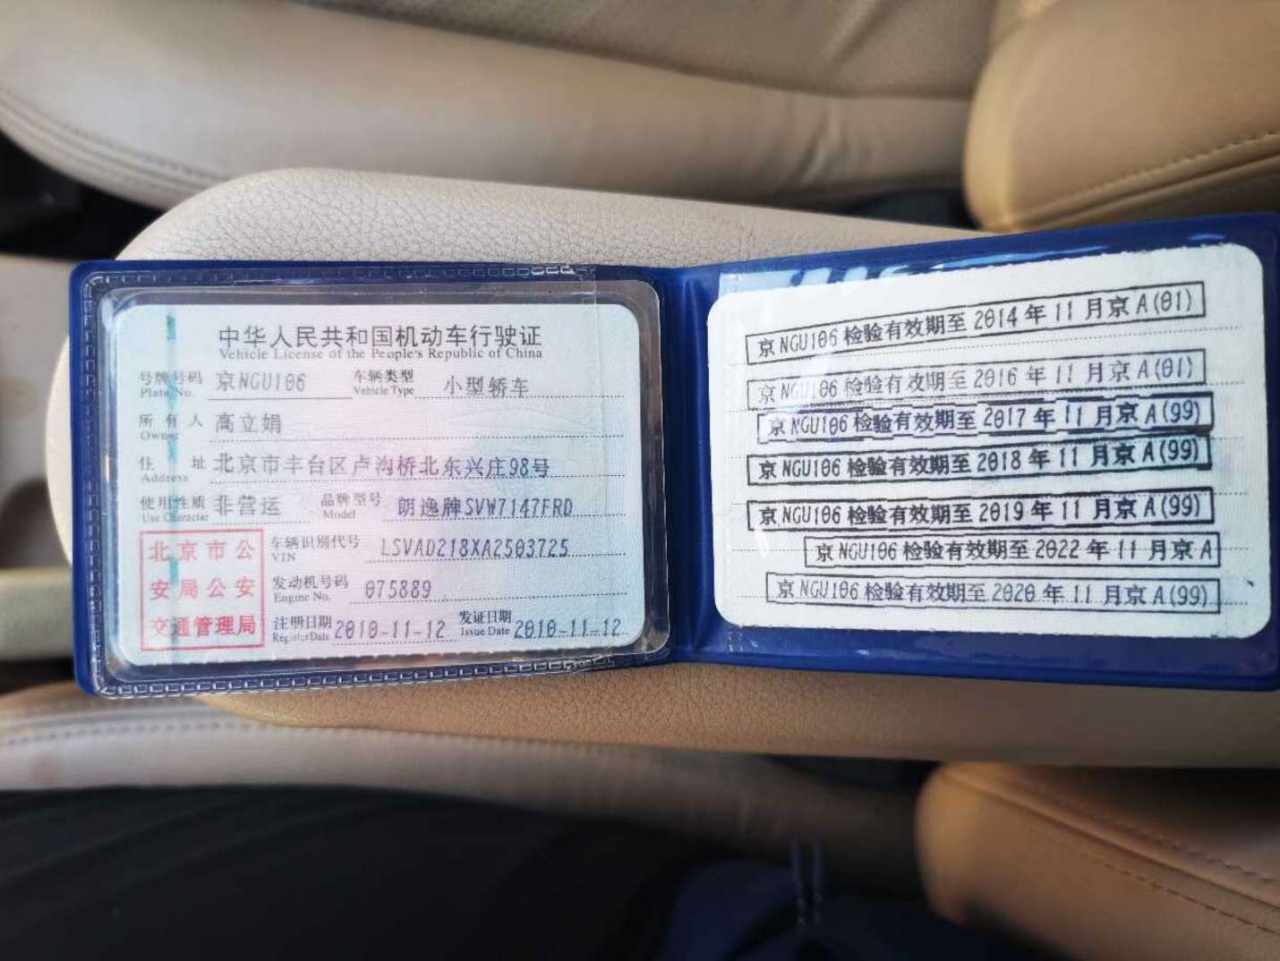 中华人民共和国机动车行驶证
Vehicle License of the People's Republic of China
号牌号码 京NGU106 车辆类型 小型轿车
Plate No. Vehicle Type
所有人 高立娟
Owner
住址 北京市丰台区卢沟桥北东兴庄98号
Address
使用性质 非营运 品牌型号 朗逸牌SVW7147FRD
Use Character Model
北京市公安局公安交通管理局
车辆识别代号 LSVAD218XA2503725
VIN
发动机号码 075889
Engine No.
注册日期 2010-11-12 发证日期 2010-11-12
Register Date Issue Date
京NGU106检验有效期至2014年11月京A(01)
京NGU106检验有效期至2016年11月京A(01)
京NGU106检验有效期至2017年11月京A(99)
京NGU106检验有效期至2018年11月京A(99)
京NGU106检验有效期至2019年11月京A(99)
京NGU106检验有效期至2022年11月京A
京NGU106检验有效期至2020年11月京A(99)